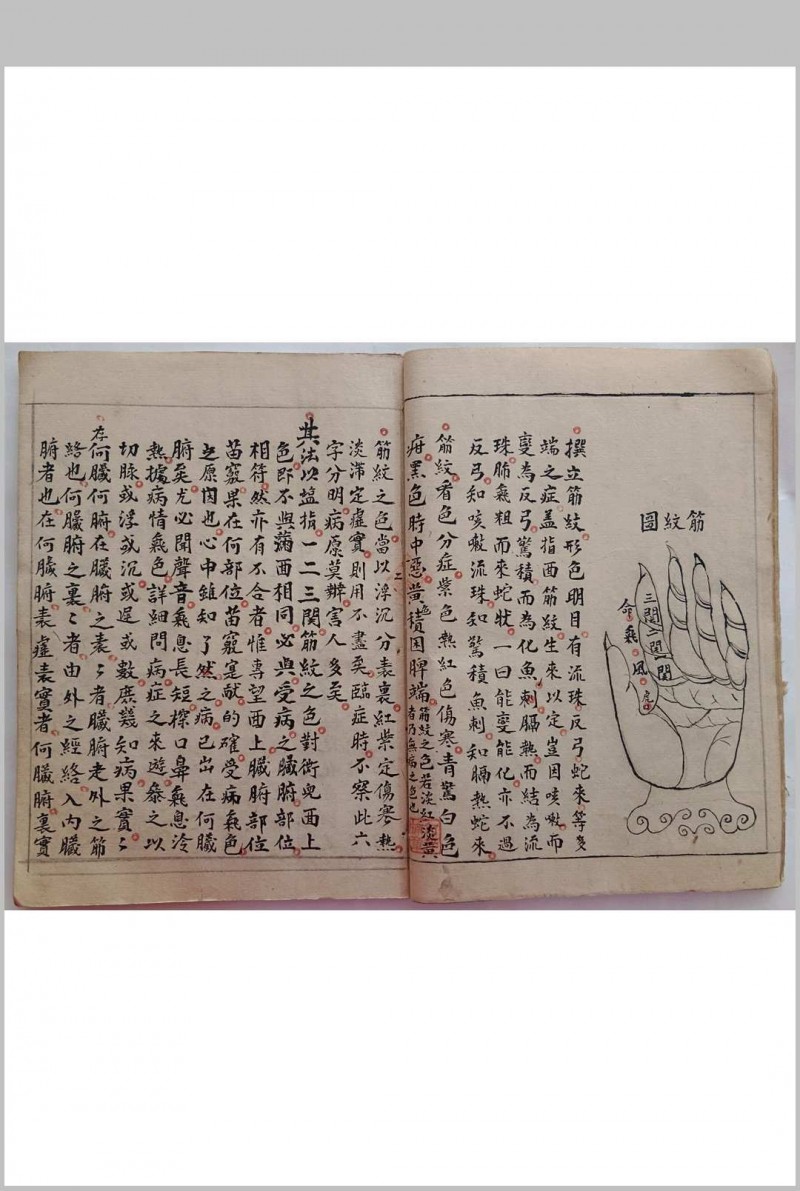 筋紋圖
三関二関一関
命氣風虎口
撰立筋紋形色明目有流珠反弓蛇来等多
端之症盖指面筋紋生来以定豈因咳嗽而
變為反弓驚積而為化魚刺膈熱而結為流
珠肺氣粗而来蛇狀一曰能變能化亦不過
反弓知咳嗽流珠知驚積魚刺知膈熱蛇来
筋紋看色分症紫色熱紅色傷寒青驚白色
疳黑色時中惡黄積困脾端筋紋之色若淡紅淡黄
者仍無病之色也
筋紋之色當以浮沉分表裏紅紫定傷寒熱
淡滯定虛實則用不盡矣臨症時不察此六
字分明病原莫辦害人多矣
其法以塩指一二三関筋紋之色對衝兒面上
色即不與面相同必與受病之臟腑部位
相符然亦有不合者惟專望面上臟腑部位
苗竅果在何部位苗竅寔献的確受病氣色
之原因也心中雖知了然之病已出在何臟
腑矣尤必聞聲音氣息長短探口鼻氣息冷
熱據病情氣色詳細問病症之来遊叅之以
切脉或浮或沉或遲或數庶幾知病果實〻
存何臟何腑在臟腑之表〻者臟腑走外之筋
絡也何臟腑之裏〻者由外之經絡入内臟
腑者也在何臟腑表虛表實者何臟腑裏實